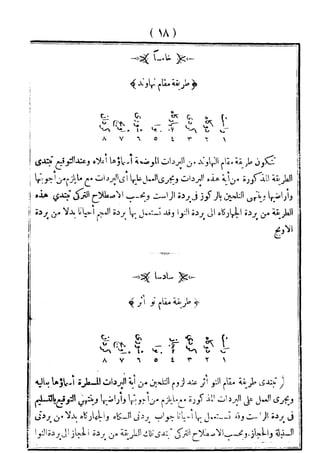 ( ١٨ )
خامساً
﴿ طريقة مقام نهاوند ﴾
راست دوكاه كردي جهاركاه نوا حصار عجم كردان
١ ٢ ٣ ٤ ٥ ٦ ٧ ٨
تتكون طريقة مقام النهاوند من البردات الموضحة أسماؤها أعلاه وعند التوقيع تبتدى
الطريقة المذكورة من أية هذه البردات ويجرى العمل عليها أى البردات مع مايلزم من أجوبتها
وأراضيها وينتهى التلحين بالركوز فى بردة الراست وبحسب الاصطلاح التركى تبتدى هذه
الطريقة من بردة الجهاركاه الى بردة النوا وقد تستعمل بها بردة العجم أحيانا بدلا من بردة
الاويج
سادسا
﴿ طريقة مقام نو أثر ﴾
راست دوكاه كردي حجاز نوا كردان
١ ٢ ٣ ٤ ٥ ٦ ٧ ٨
تبتدى طريقة مقام النو أثر عند لزوم التلحين من أية البردات المسطرة أسماؤها بعاليه
ويجرى العمل على البردات المذكورة مع مايلزم من أجوبتها وأراضيها وينتهى التوقيع بالتسليم
فى بردة الراست وقد تستعمل بها أحيانا جواب بردتى السكاه والجهاركاه بدلا من بردتى
السنبلة والحجاز وبحسب الاصطلاح التركى تبتدى تلك الطريقة من بردة الحجاز الى بردة النوا